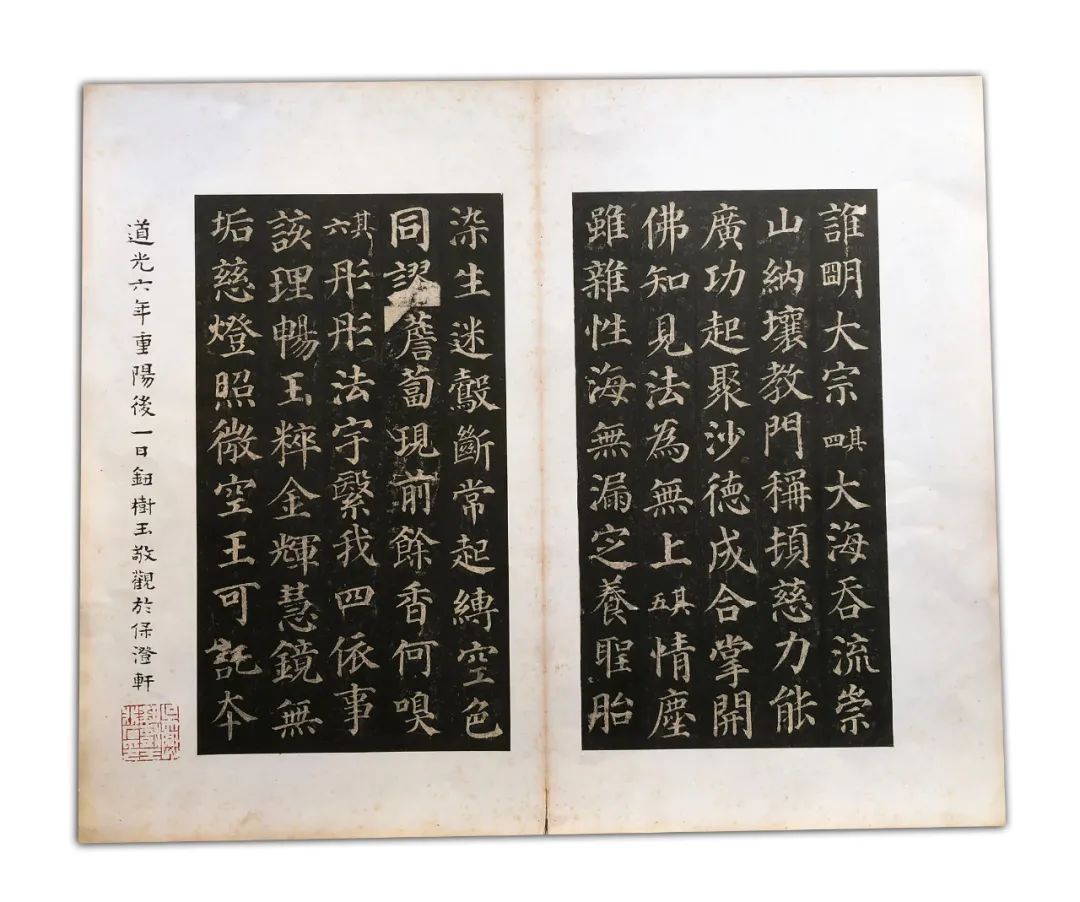 誰明大宗其四大海吞流崇
山納壤教門稱頓慈力能
廣功起聚沙德成合掌開
佛知見法為無上其五情塵
雖雜性海無漏定養聖胎
染生迷㲉斷常起縛空色
同謬薝蔔現前餘香何嗅
其六彤彤法宇繄我四依事
該理暢玉粹金輝慧鏡無
垢慈燈照微空王可託本
道光六年重陽後一日鈕樹玉敬觀於保澄軒